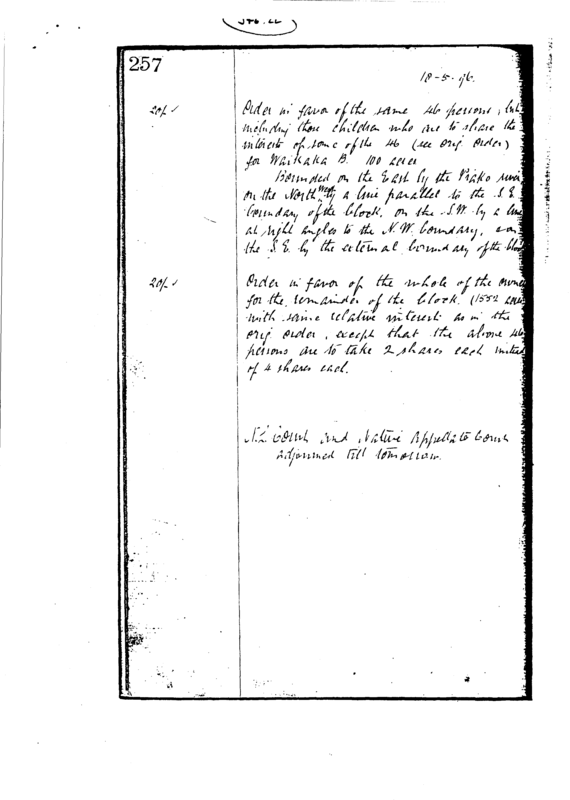 257
18-5-96.
20/- ✓ Order in favor of the same 46 persons, but
including those children who are to share the
interest of some of the 46 (see orig. order)
for Waikaka B. 100 acres
Bounded on the East by the Piako river
on the North West by a line parallel to the S.E.
boundary of the block, on the S.W. by a line
at right angles to the N.W. boundary, and
the S.E. by the external boundary of the block
20/- ✓ Order in favor of the whole of the owners
for the remainder of the block (1552 acres
with same relative interest as in the
orig order, except that the above 46
persons are to take 2 shares each instead
of 4 shares each.
N.L. Court and Native Appellate Court
adjourned till tomorrow.